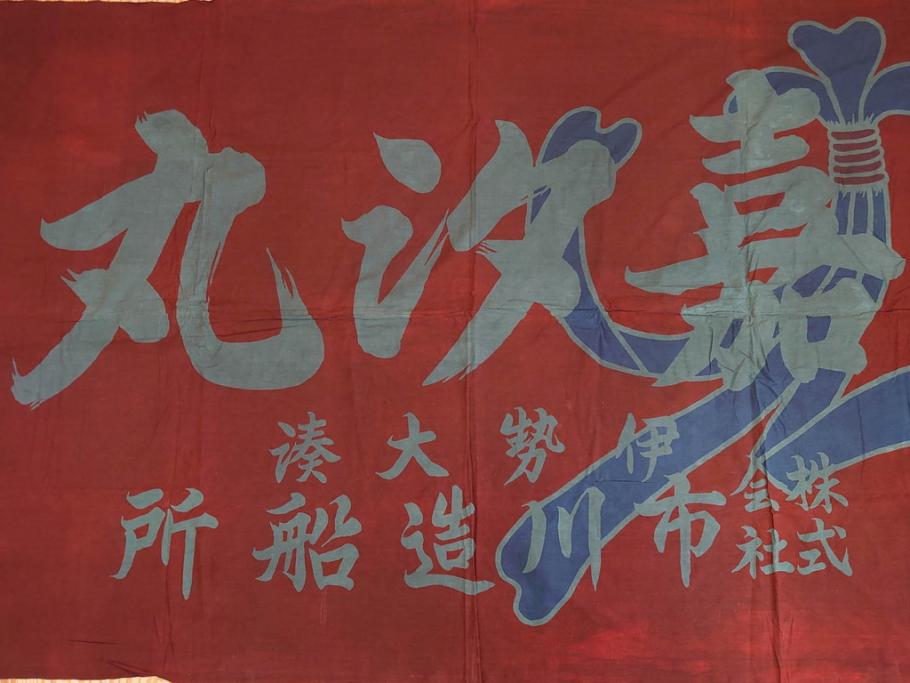 嘉次丸
伊勢大湊
株式会社市川造船所